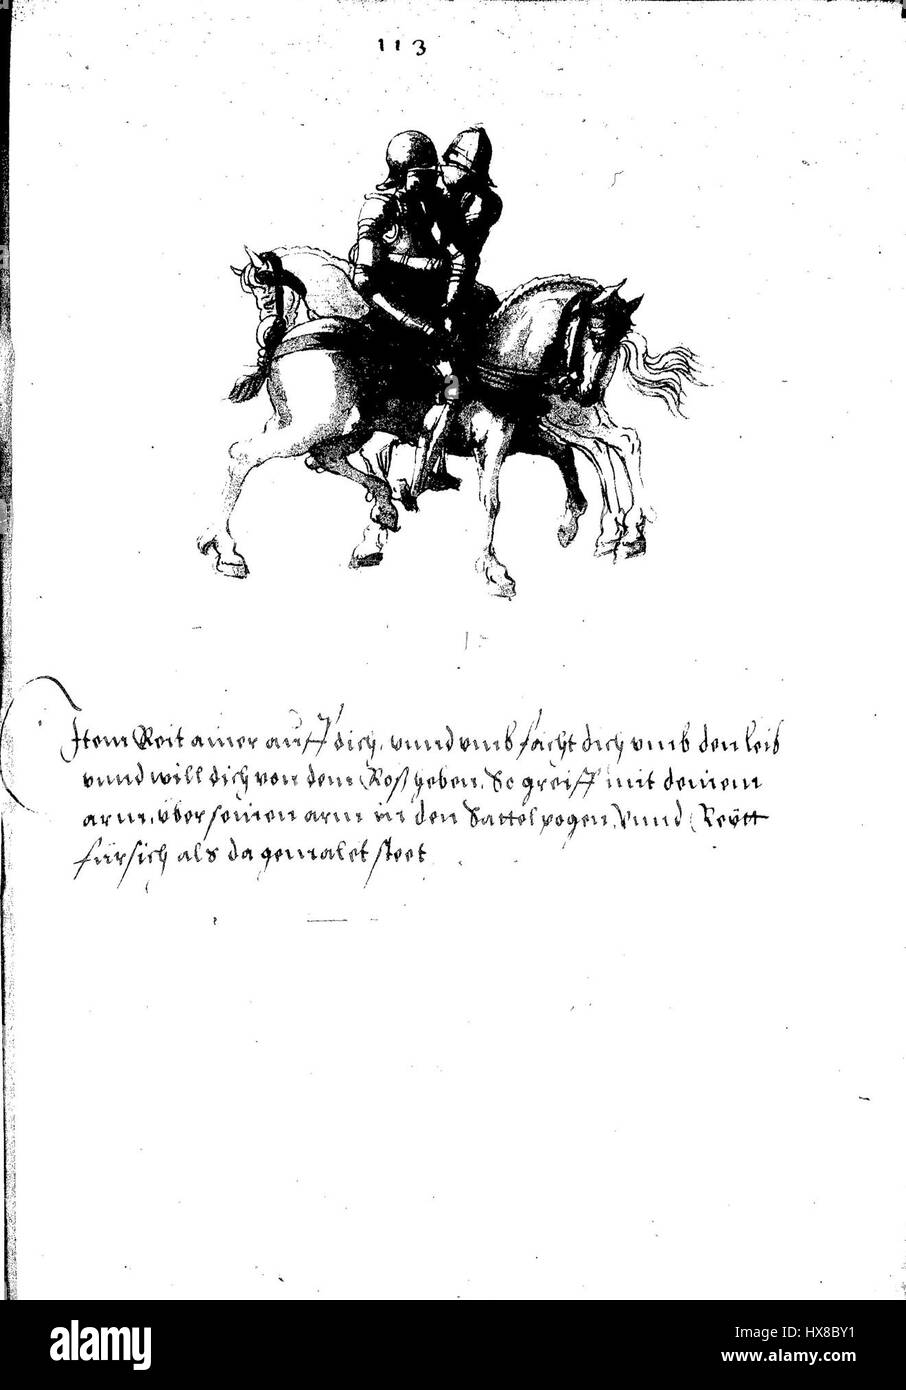 113
Item Reit ainer auff dich, vnnd vmbfacht dich vmb den leib
vnnd will dich von dem Roß heben, So greiff mit deinem
arm, vber seinen arm in den Sattelpogen, Vnnd Reytt
fürsich als da gemalet steet
alamy
Image ID: HX8BY1
www.alamy.com